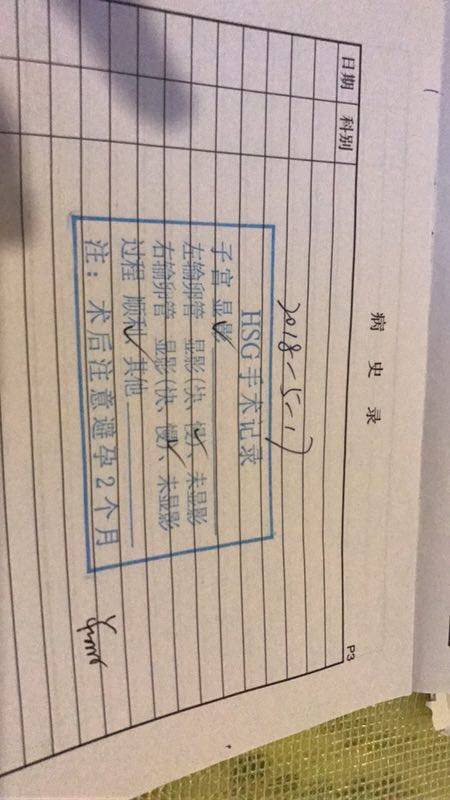 病史录
日期 科别
2018-5-17
HSG手术记录
子宫 显影✓
左输卵管 显影(快、慢✓)、未显影
右输卵管 显影(快、慢✓)、未显影
过程 顺利✓其他
注：术后注意避孕2个月
P3